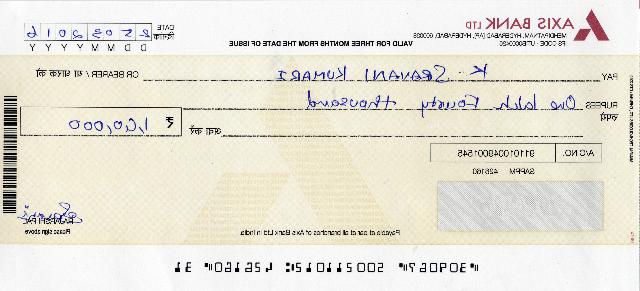 AXIS BANK LTD
MEHDIPATNAM, HYDERABAD [AP], HYDERABAD 500028
IFS CODE: UTIB0000430
VALID FOR THREE MONTHS FROM THE DATE OF ISSUE
DATE दिनांक 25032016
D D M M Y Y Y Y
PAY K. SRAVANI KUMARI OR BEARER / या धारक को
RUPEES रुपये One lakh Fourty thousand
अदा करें ₹ 1,40,000
A/C NO. 911010049001545
SAPPM 425160
Payable at par at all branches of Axis Bank Ltd in India.
Please sign above
"309067" 500211015: 425160" 31